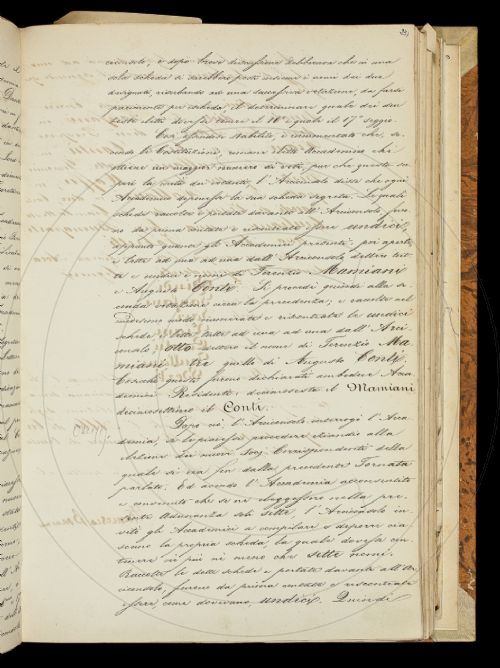 ciconsolo, e dopo breve discussione deliberava che in una
sola scheda si dovessero porre insieme i nomi dei due
designati, riserbando ad una successiva votazione, da farsi
parimente per ischeda, il determinare quale dei due
eletti dovesse tenere il 16° e quale il 17° seggio.
Ciò essendo stabilito, e rammentato che, se-
condo le Costituzioni, rimane eletto Accademico chi
ottiene un maggior numero di voti, pur che questo su-
peri la metà dei votanti, l'Arciconsolo disse che ogni
Accademico deponesse la sua scheda segreta. Le quali
schede raccolte e portate davanti all'Arciconsolo, furo-
no da prima contate e riscontrate essere undici,
appunto quanti gli Accademici presenti: poi aperte
e lette ad una ad una dall'Arciconsolo, dettero tut-
te e undici i nomi di Terenzio Mamiani
e Augusto Conti. Si procedé quindi alla se-
conda votazione circa la precedenza; e raccolte nel
medesimo modo, numerate e riscontrate le undici
schede, e lette tutte ad una ad una dall'Arci-
consolo, otto dettero il nome di Terenzio Ma-
miani, tre quello di Augusto Conti.
Cosicché questi furono dichiarati ambedue Acca-
demici Residenti, decimosesto il Mamiani
decimosettimo il Conti.
Dopo ciò, l'Arciconsolo interrogò l'Acca-
demia, se le piacesse procedere eziandio alla
elezione dei nuovi Socj Corrispondenti della
quale si era fin dalla precedente Tornata
parlato. Ed avendo l'Accademia acconsentito
e convenuto che se ne eleggessero nella pre-
sente Adunanza soli sette, l'Arciconsolo in-
vitò gli Accademici a compilare e deporre cia-
scuno la propria scheda, la quale dovesse con-
tenere né più né meno che sette nomi.
Raccolte le dette schede e portate davanti all'Ar-
ciconsolo, furono da prima contate e riscontrate
essere come dovevano, undici. Quindi